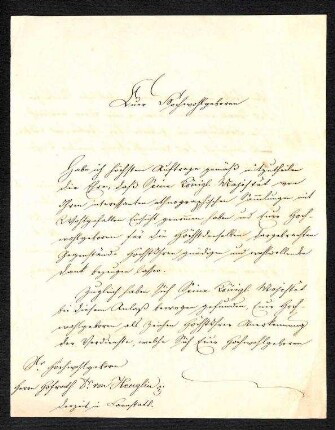 Euer Hochwohlgeboren
Habe ich höchstem Auftrage gemäß mitzutheilen
die Ehre, daß Seine Königl. Majestät von
Ihren interessanten ethnographischen Sammlungen mit
Wohlgefallen Einsicht genommen haben und Eure Hoch-
wohlgeboren für die Höchstdenselben dargebrachten
Gegenstände Höchstihren gnädigen und wohlwollenden
Dank bezeugen lassen.
Zugleich haben Sich Seine Königl. Majestät
bei diesem Anlaß bewogen gefunden, Eure Hoch-
wohlgeboren als Zeichen Höchstihrer Anerkennung
der Verdienste, welche Sich Eure Hochwohlgeboren
Sr. Hochwohlgeboren
Herrn Hofrath Dr. von Heuglin
derzeit in Cannstatt.